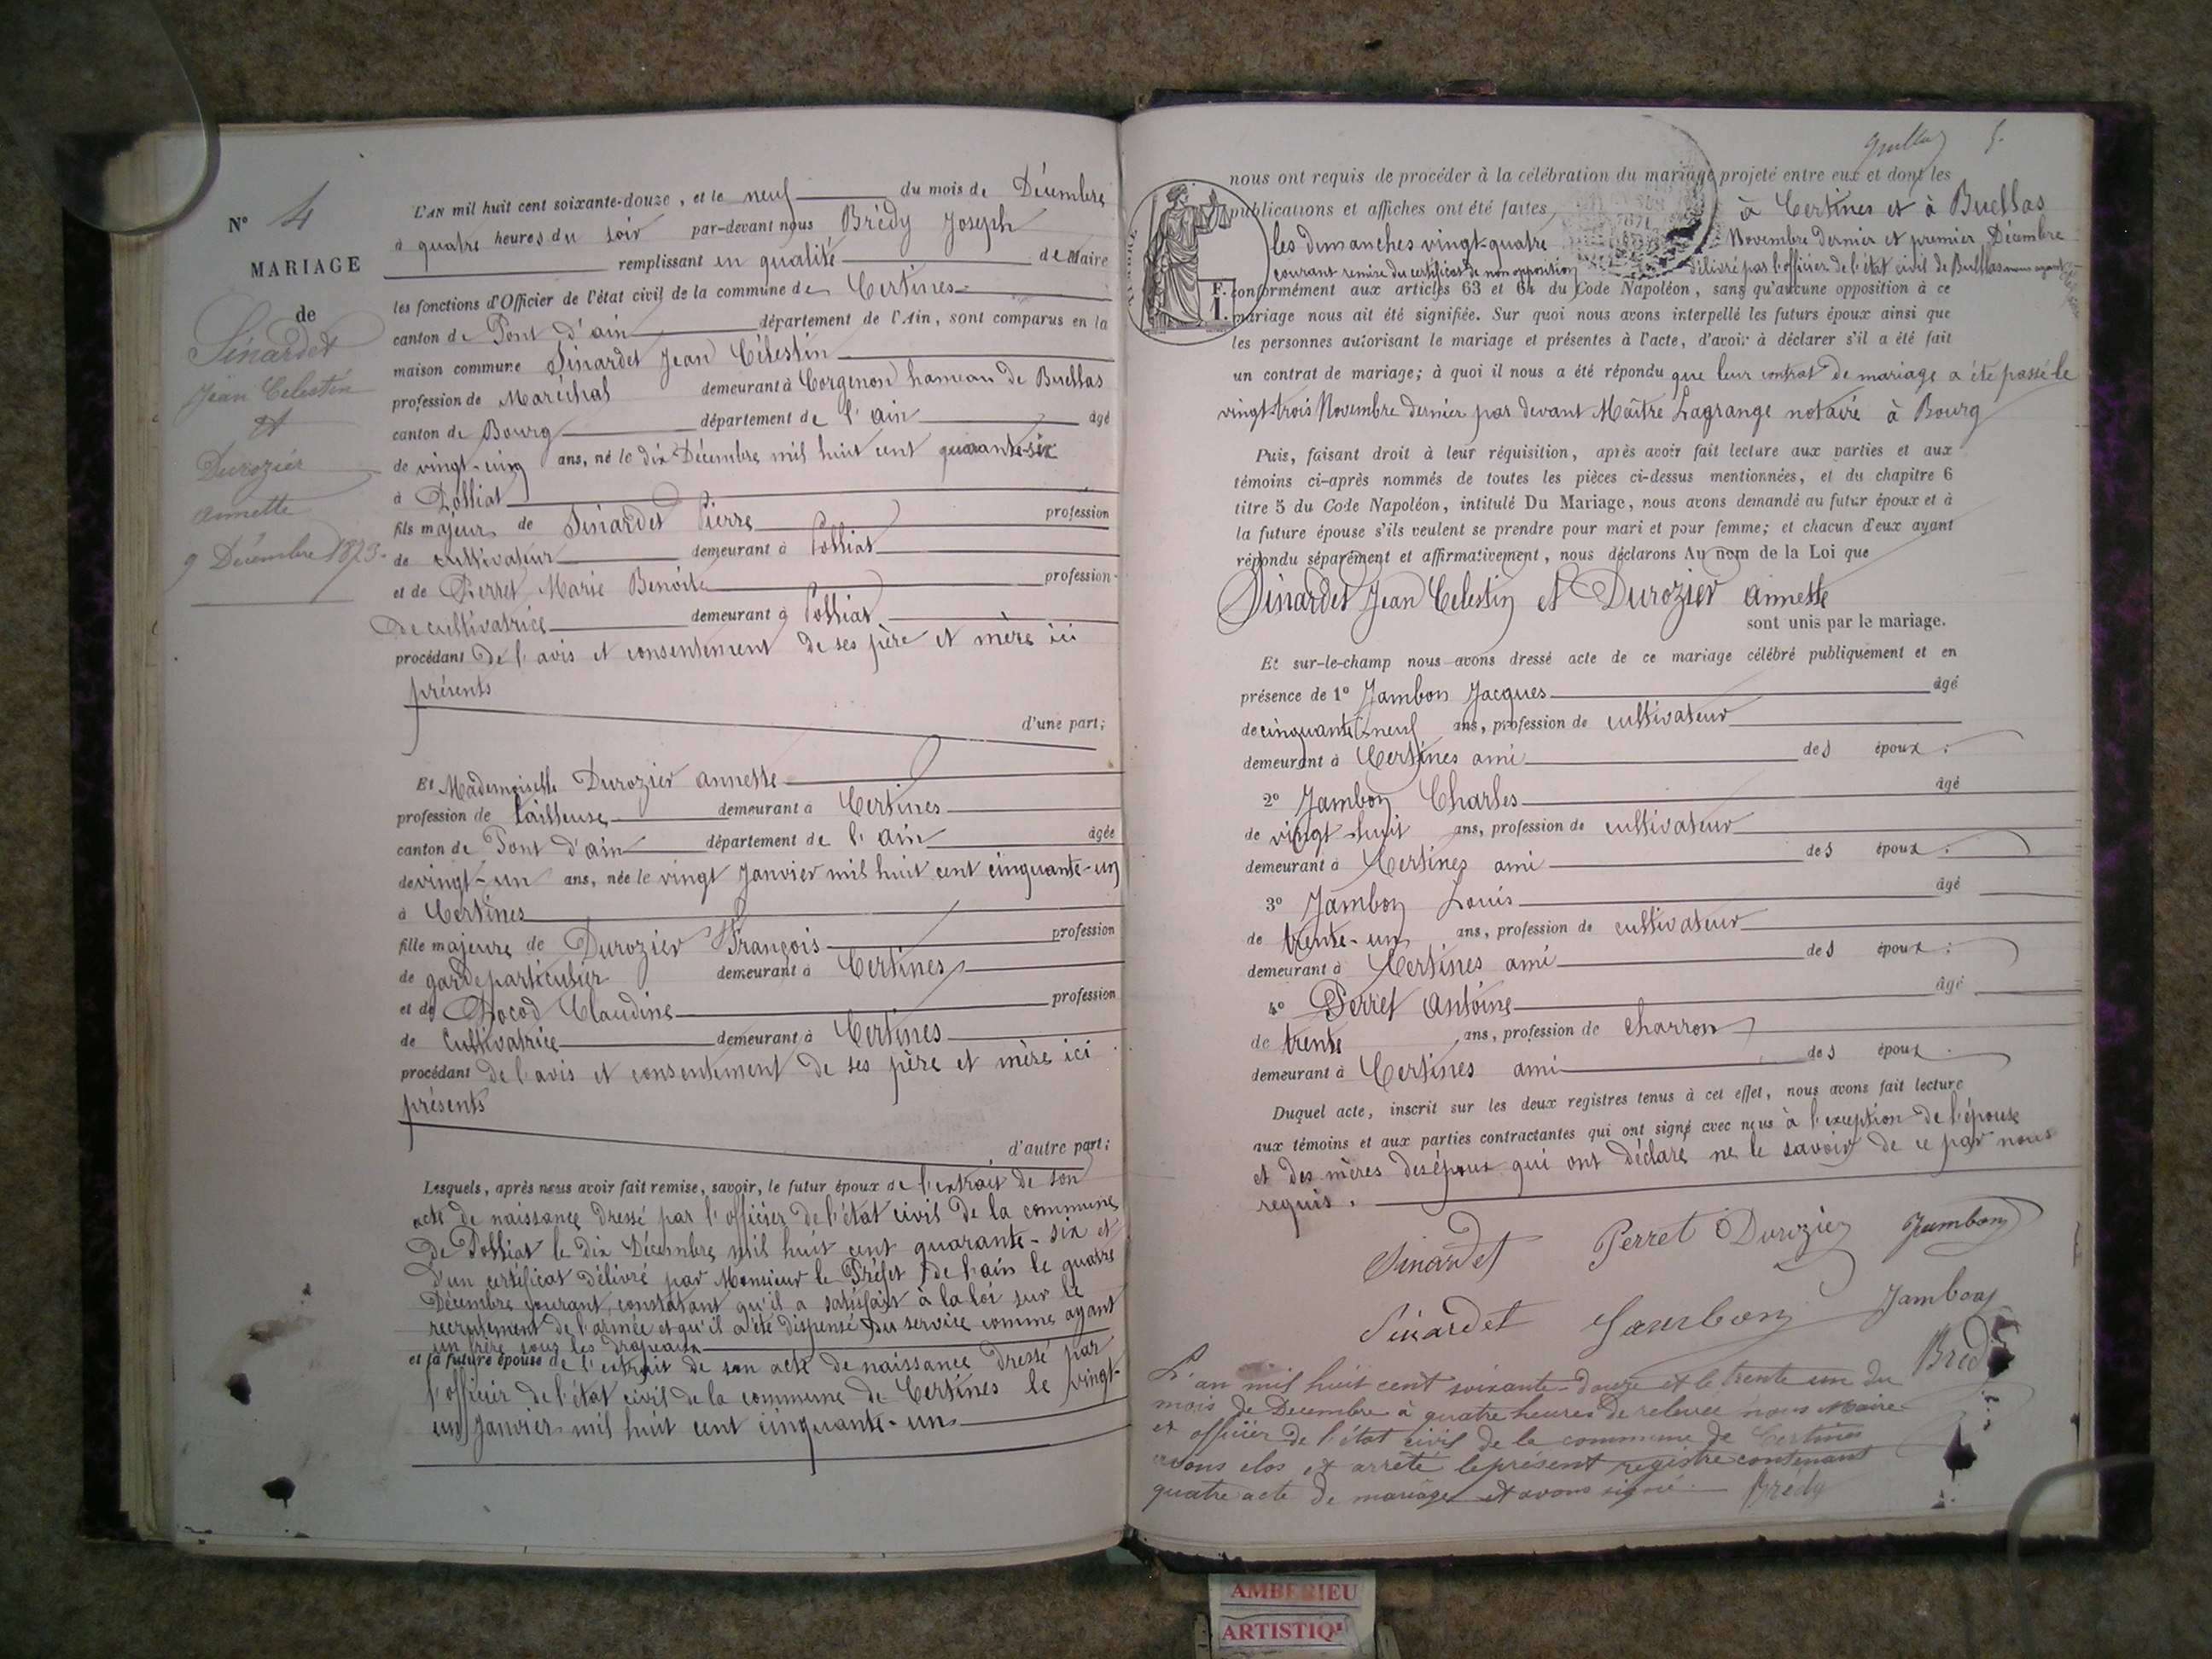 N° 4
MARIAGE
de
Sinardet
Jean Celestin
et
Durozier
annette
9 Décembre 1873.
L'AN mil huit cent soixante-douze, et le neuf du mois de Décembre
à quatre heures du soir par-devant nous Brédy Joseph
remplissant en qualité de Maire
les fonctions d'Officier de l'état civil de la commune de Certines
canton de Pont d'ain département de l'Ain, sont comparus en la
maison commune Sinardet Jean Célestin
profession de Maréchal demeurant à Corgenon hameau de Buellas
canton de Bourg département de l'ain âgé
de vingt-cinq ans, né le dix Décembre mil huit cent quarante-six
à Polliat
fils majeur de Sinardet Pierre profession
de cultivateur demeurant à Polliat
et de Perret Marie Benoite profession
de cultivatrice demeurant à Polliat
procédant de l'avis et consentement de ses père et mère ici
présents
d'une part;
Et Mademoiselle Durozier annette
profession de tailleuse demeurant à Certines
canton de Pont d'ain département de l'ain âgée
de vingt-un ans, née le vingt Janvier mil huit cent cinquante-un
à Certines
fille majeure de Durozier François profession
de garde particulier demeurant à Certines
et de Chocod Claudine profession
de Cultivatrice demeurant à Certines
procédant de l'avis et consentement de ses père et mère ici
présents
d'autre part;
Lesquels, après nous avoir fait remise, savoir, le futur époux de l'extrait de son
acte de naissance dressé par l'officier de l'état civil de la commune
de Polliat le dix Décembre mil huit cent quarante-six et
d'un certificat délivré par Monsieur le Préfet de l'ain le quatre
Décembre courant, constatant qu'il a satisfait à la loi sur le
recrutement de l'armée et qu'il a été dispensé du service comme ayant
un frère sous les drapeaux
et la future épouse de l'extrait de son acte de naissance dressé par
l'officier de l'état civil de la commune de Certines le vingt-
un Janvier mil huit cent cinquante-un
5.
nous ont requis de procéder à la célébration du mariage projeté entre eux et dont les
publications et affiches ont été faites à Certines et à Buellas
les dimanches vingt-quatre Novembre dernier et premier Décembre
courant remise du certificat de non opposition délivré par l'officier de l'état civil de Buellas nous ayant
F.
1.
conformément aux articles 63 et 64 du Code Napoléon, sans qu'aucune opposition à ce
mariage nous ait été signifiée. Sur quoi nous avons interpellé les futurs époux ainsi que
les personnes autorisant le mariage et présentes à l'acte, d'avoir à déclarer s'il a été fait
un contrat de mariage; à quoi il nous a été répondu que leur contrat de mariage a été passé le
vingt-trois Novembre dernier par devant Maître Lagrange notaire à Bourg
Puis, faisant droit à leur réquisition, après avoir fait lecture aux parties et aux
témoins ci-après nommés de toutes les pièces ci-dessus mentionnées, et du chapitre 6
titre 5 du Code Napoléon, intitulé Du Mariage, nous avons demandé au futur époux et à
la future épouse s'ils veulent se prendre pour mari et pour femme; et chacun d'eux ayant
répondu séparément et affirmativement, nous déclarons Au nom de la Loi que
Sinardet Jean Celestin et Durozier annette
sont unis par le mariage.
Et sur-le-champ nous avons dressé acte de ce mariage célébré publiquement et en
présence de 1° Jambon Jacques âgé
de cinquante neuf ans, profession de cultivateur
demeurant à Certines ami des époux;
2° Jambon Charles âgé
de vingt-huit ans, profession de cultivateur
demeurant à Certines ami des époux;
3° Jambon Louis âgé
de trente-un ans, profession de cultivateur
demeurant à Certines ami des époux;
4° Perret Antoine âgé
de trente ans, profession de charron
demeurant à Certines ami des époux.
Duquel acte, inscrit sur les deux registres tenus à cet effet, nous avons fait lecture
aux témoins et aux parties contractantes qui ont signé avec nous à l'exception de l'épouse
et des mères des époux qui ont déclaré ne le savoir de ce par nous
requis.
Sinardet Perret Durozier Jambon
Sinardet Jambon Jambon
Brédy
L'an mil huit cent soixante-douze et le trente un du
mois de Decembre à quatre heures de relevée nous Maire
et officier de l'état civil de la commune de Certines
avons clos et arrêté le présent registre contenant
quatre acte de mariage et avons signé. Brédy
AMBERIEU
ARTISTIQ